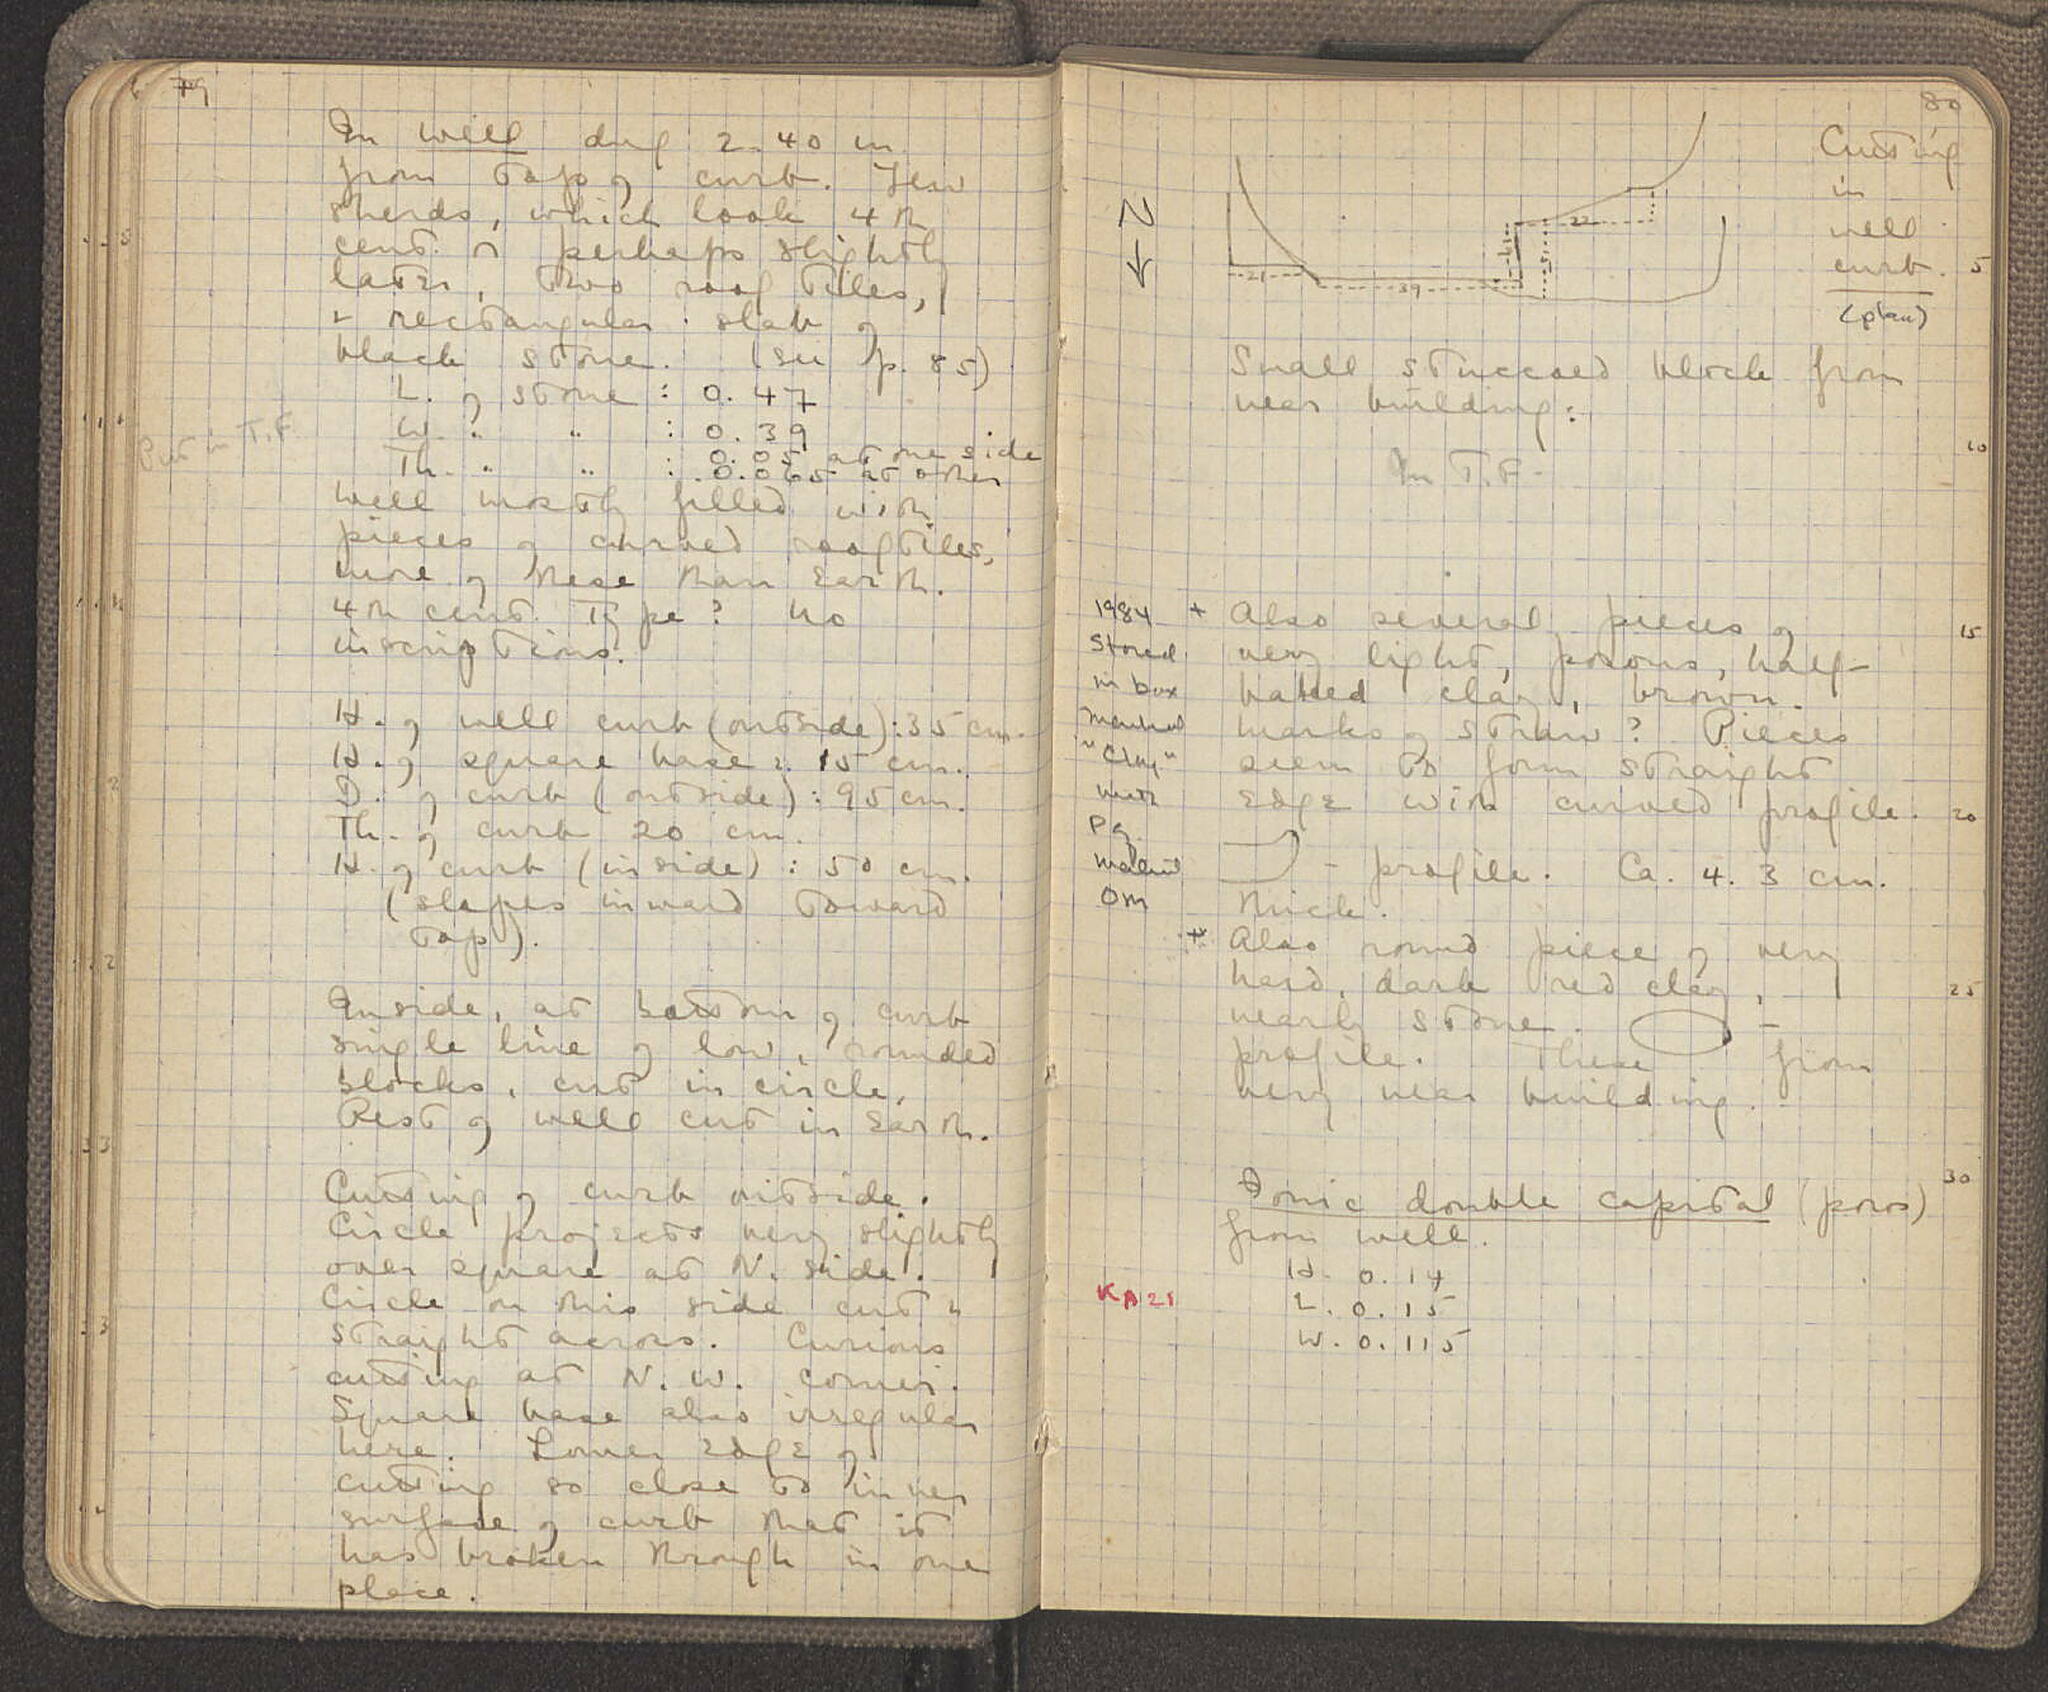 79
In well dug 2.40 m.
from top of curb. Few
sherds, which look 4th
cent. or perhaps slightly
later, two roof tiles,
+ rectangular slab of
black stone. (see p. 85)
L. of stone : 0.47
W. " " : 0.39
Put in T.F.
Th. " " : 0.05 at one side
0.065 at other
Well mostly filled with
pieces of curved rooftiles,
more of these than earth.
4th cent. Type? No
inscriptions.
H. of well curb (outside): 35 cm.
H. of square base : 15 cm.
D. of curb (outside) : 95 cm.
Th. of curb 20 cm.
H. of curb (inside) : 50 cm.
(slopes inward toward
top).
Inside, at bottom of curb
single line of low, rounded
blocks, cut in circle.
Rest of well cut in earth.
Cutting of curb outside.
Circle projects very slightly
over square at N. side.
Circle on this side cut
straight across. Curious
cutting at N.W. corner.
Square base also irregular
here. Lower edge of
cutting so close to inner
surface of curb that it
has broken through in one
place.
80
Cutting
in
well
curb.
(plan)
N
21
39
22
5
Small stuccoed block from
near building:
10
In T.F.
1984
Stored
in box
marked
"Clay"
Om
+ Also several pieces of
15
very light, porous, half-
baked clay, brown.
marks of straw? Pieces
seem to form straight
edge with curved profile.
20
- profile. Ca. 4.3 cm.
thick.
+ Also round piece of very
hard, dark red clay,
25
nearly stone. -
profile. These from
very near building.
30
Ionic double capital (poros)
from well.
H. 0.14
KA21
L. 0.15
W. 0.115